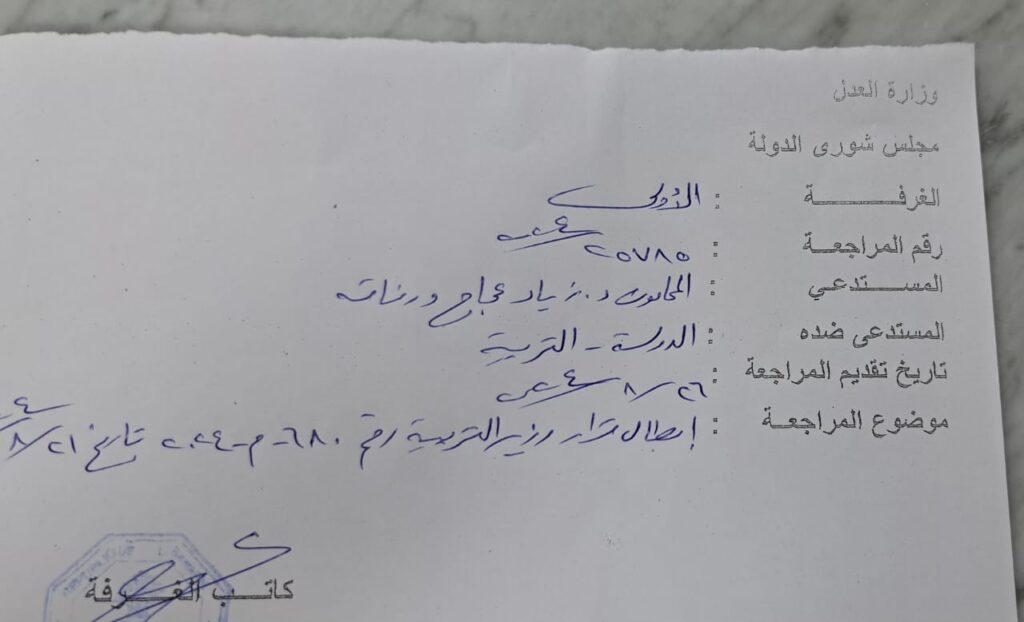 وزارة العدل
مجلس شورى الدولة
الغرفة : الأولى
رقم المراجعة : ٢٥٧٨٥ / ٢٠٢٤
المستدعي : المحامون د. زياد عجاج ورفاقه
المستدعى ضده : الدولة - التربية
تاريخ تقديم المراجعة : ٢٦/٨/
موضوع المراجعة : إبطال قرار وزير التربية رقم ٦٨٠-م-٢٠٢٤ تاريخ ٢١/٨/
كاتب الغرفة